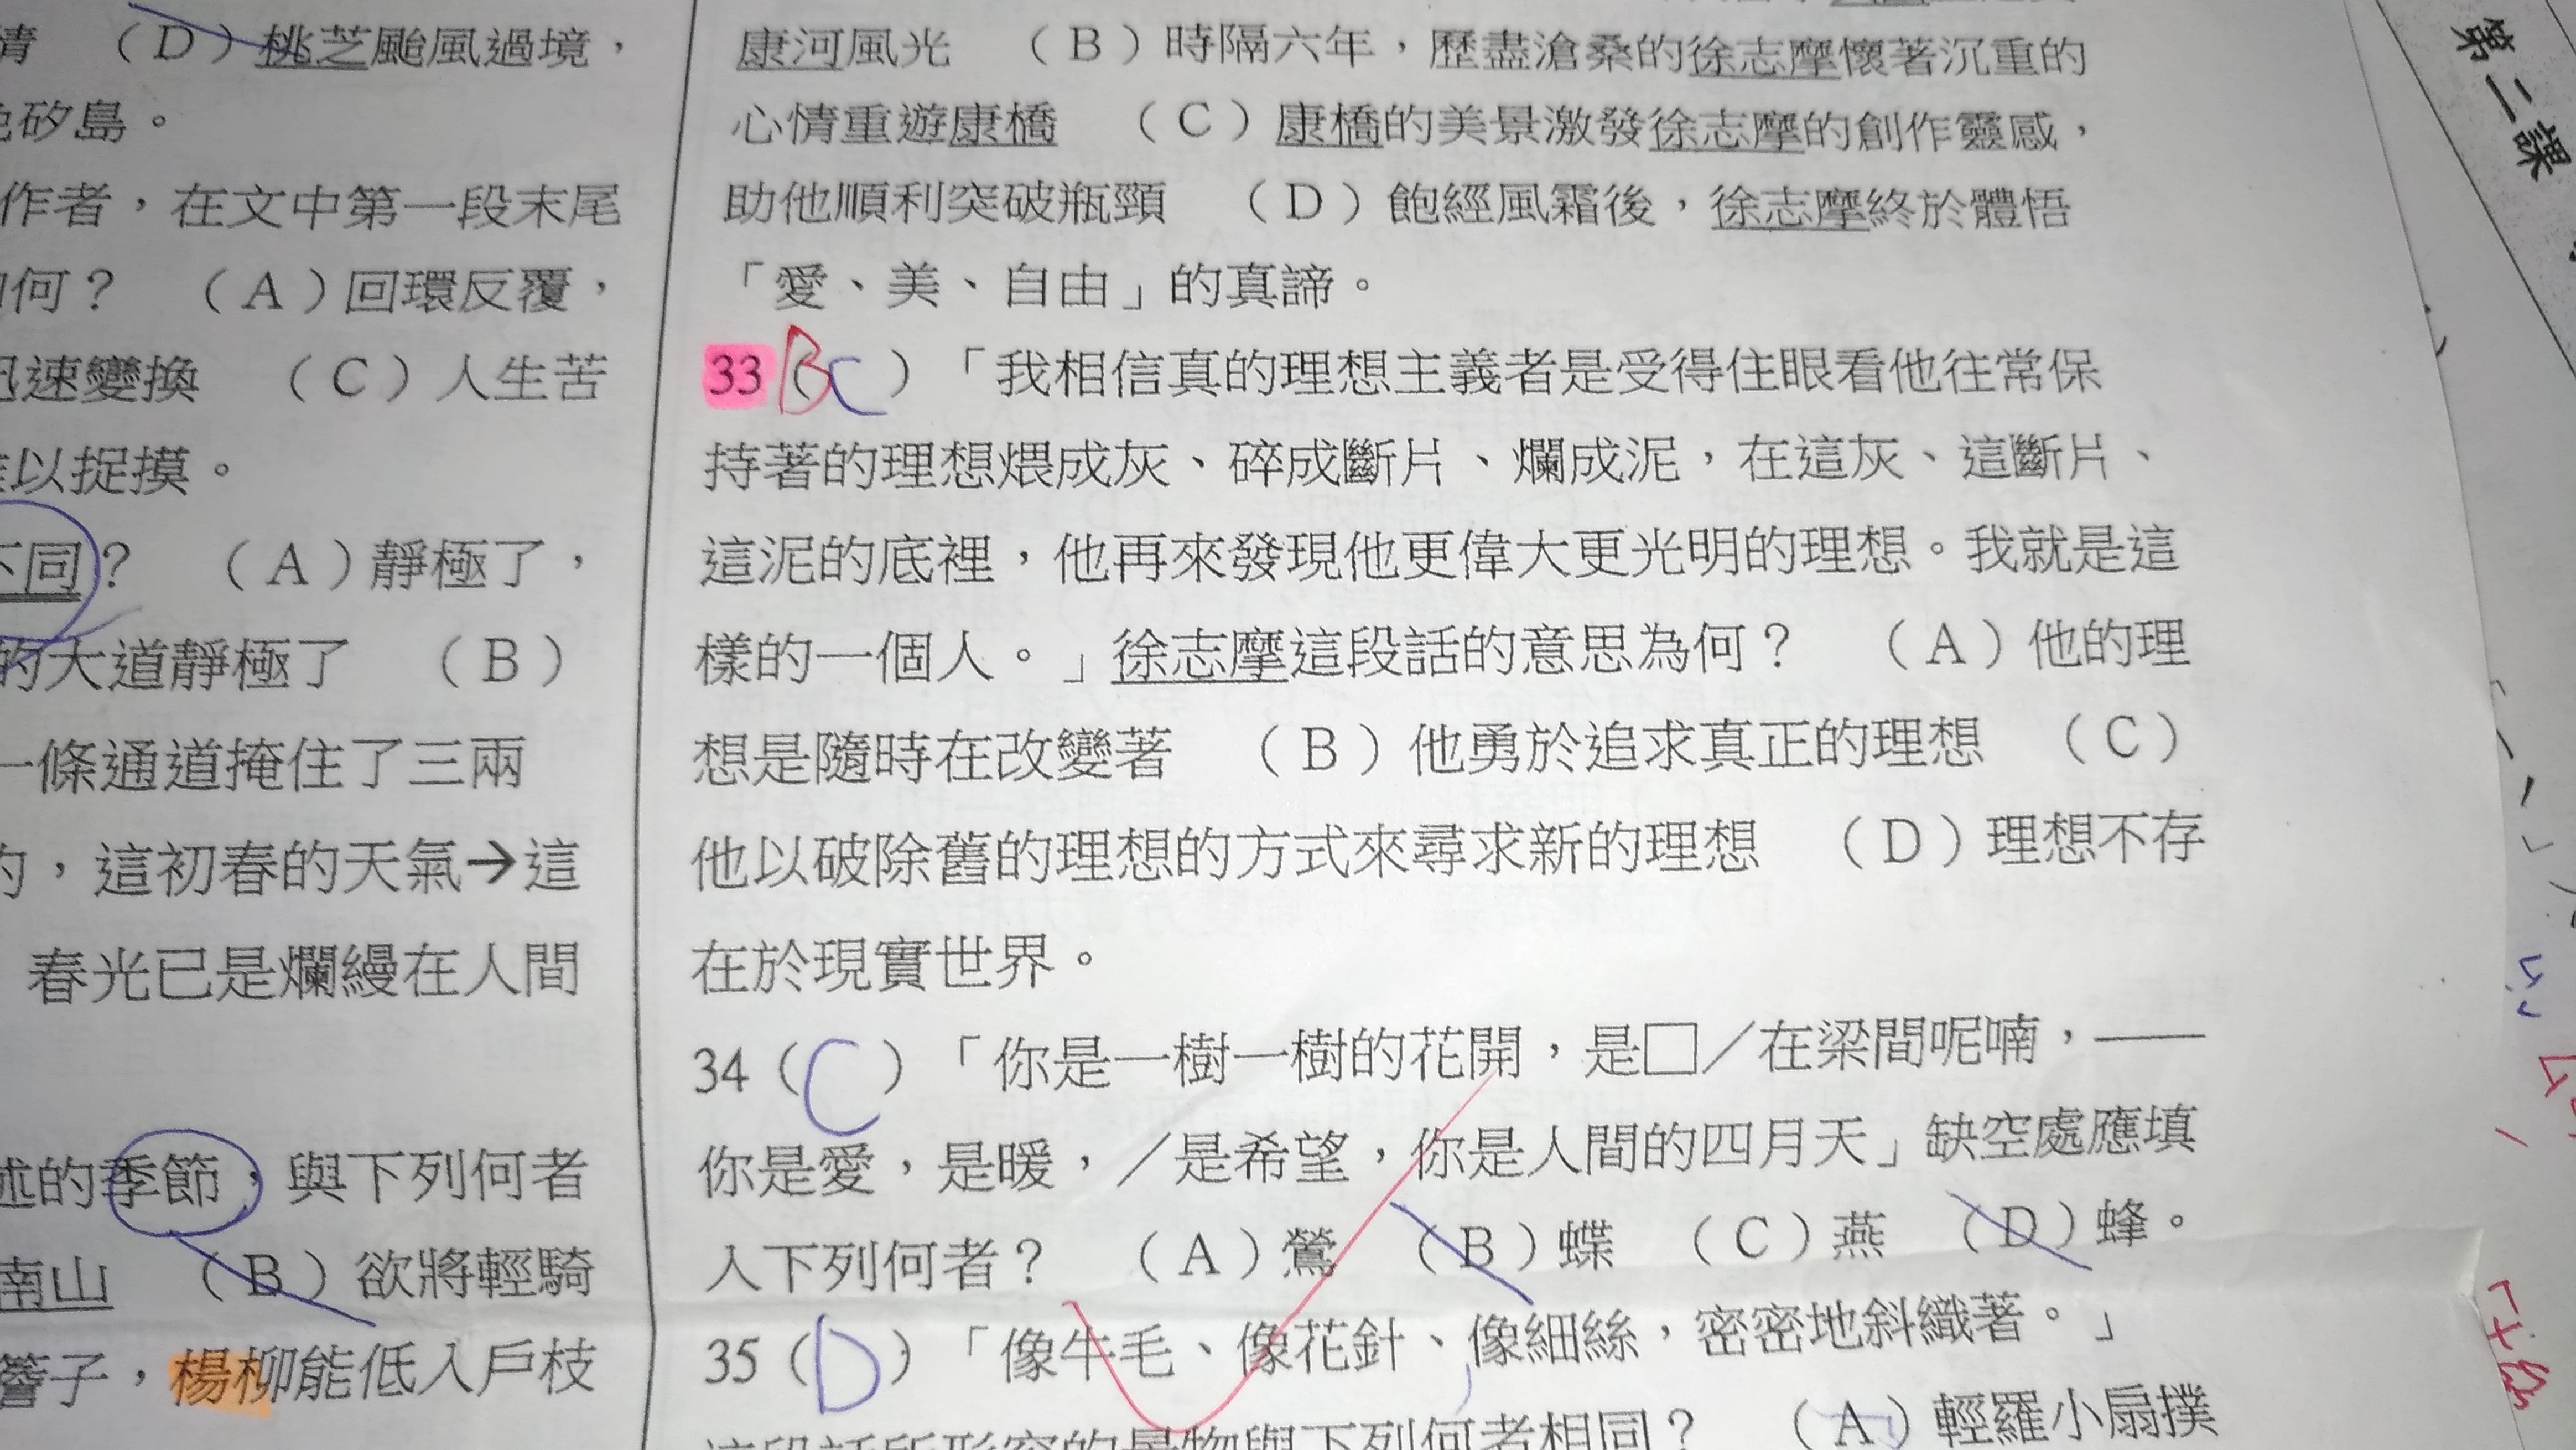 情　（D）桃芝颱風過境，
色矽島。
作者，在文中第一段末尾
何？　（A）回環反覆，
迅速變換　（C）人生苦
以捉摸。
不同？　（A）靜極了，
的大道靜極了　（B）
一條通道掩住了三兩
的，這初春的天氣→這
春光已是爛縵在人間
述的季節，與下列何者
南山　（B）欲將輕騎
簷子，楊柳能低入戶枝
康河風光　（B）時隔六年，歷盡滄桑的徐志摩懷著沉重的
心情重遊康橋　（C）康橋的美景激發徐志摩的創作靈感，
助他順利突破瓶頸　（D）飽經風霜後，徐志摩終於體悟
「愛、美、自由」的真諦。
33（B C）「我相信真的理想主義者是受得住眼看他往常保
持著的理想煨成灰、碎成斷片、爛成泥，在這灰、這斷片、
這泥的底裡，他再來發現他更偉大更光明的理想。我就是這
樣的一個人。」徐志摩這段話的意思為何？　（A）他的理
想是隨時在改變著　（B）他勇於追求真正的理想　（C）
他以破除舊的理想的方式來尋求新的理想　（D）理想不存
在於現實世界。
34（C）「你是一樹一樹的花開，是□／在梁間呢喃，——
你是愛，是暖，／是希望，你是人間的四月天」缺空處應填
入下列何者？　（A）鶯　（B）蝶　（C）燕　（D）蜂。
35（D）「像牛毛、像花針、像細絲，密密地斜織著。」
這段話所形容的景物與下列何者相同？　（A）輕羅小扇撲
第二課